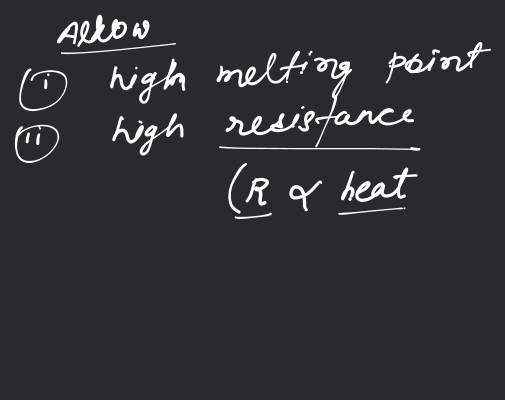 Alloy
(i) high melting point
(ii) high resistance
(R ∝ heat